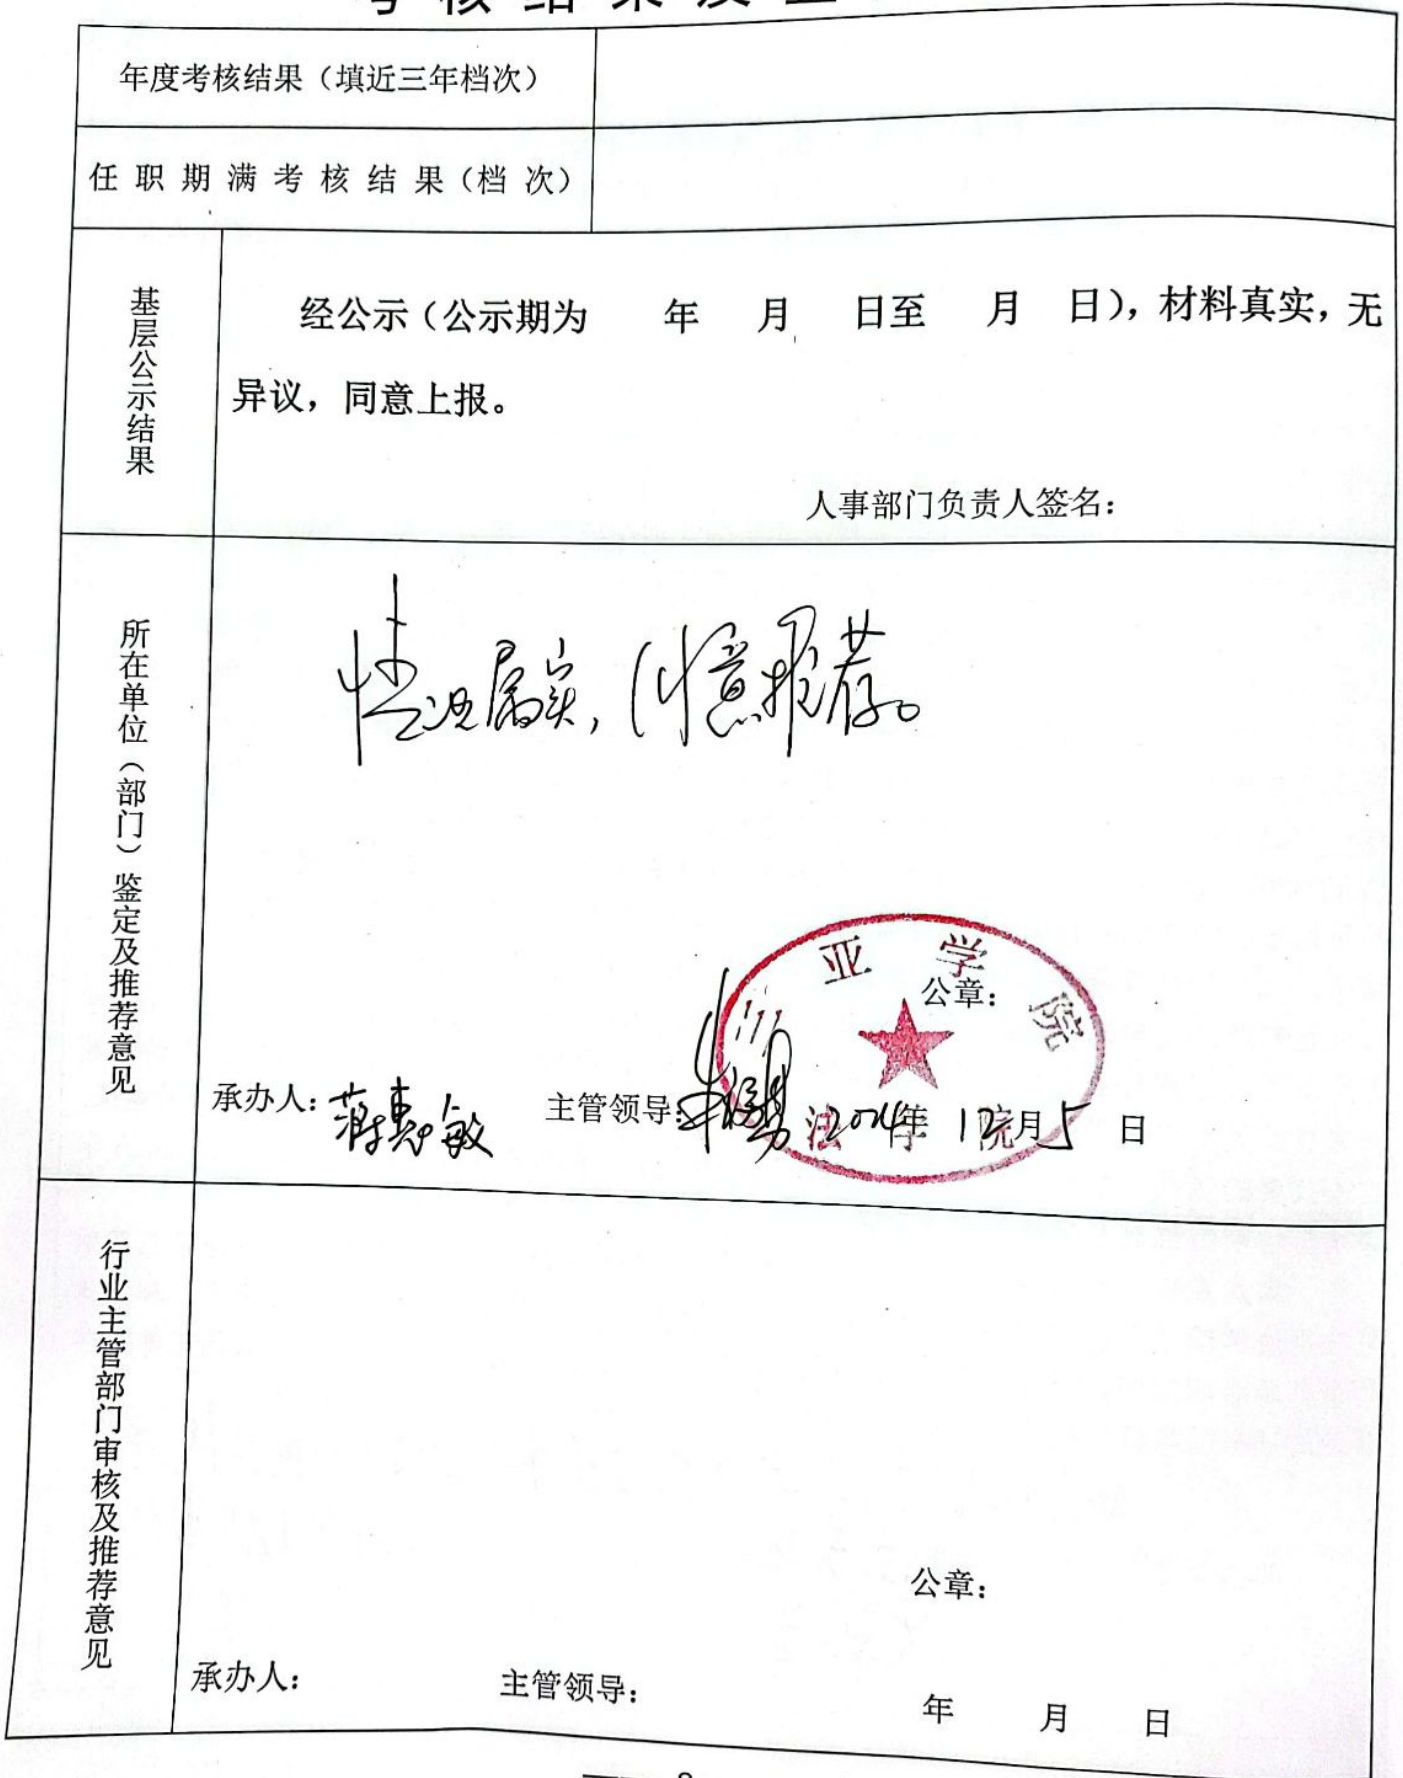 考核结果及
年度考核结果（填近三年档次）
任职期满考核结果（档次）
基层公示结果
经公示（公示期为 年 月 日至 月 日），材料真实，无
异议，同意上报。
人事部门负责人签名：
所在单位（部门）鉴定及推荐意见
情况属实，同意推荐。
三亚学院
法学院
公章：
承办人：蒋惠敏 主管领导： 2024年 12月5日
行业主管部门审核及推荐意见
公章：
承办人： 主管领导：
年 月 日